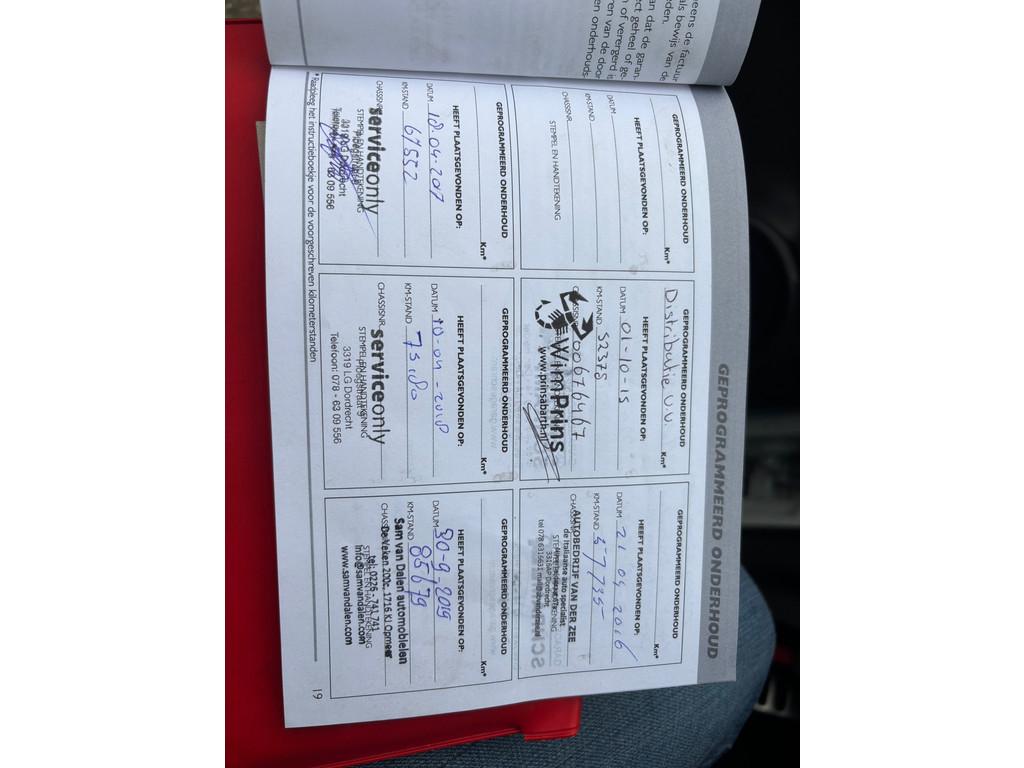 eens de factuur
als bewijs van de
den.
an dat de garan-
ct geheel of ge-
n of verergerd is
ren van de door
en onderhouds-
GEPROGRAMMEERD ONDERHOUD
GEPROGRAMMEERD ONDERHOUD
Km*
HEEFT PLAATSGEVONDEN OP:
DATUM
KM-STAND
CHASSISNR.
STEMPEL EN HANDTEKENING
GEPROGRAMMEERD ONDERHOUD
Distributie v.v.
Km*
HEEFT PLAATSGEVONDEN OP:
DATUM 01-10-15
KM-STAND 52375
CHASSISNR. 00676467
WimPrins
www.prinsabarth.nl
GEPROGRAMMEERD ONDERHOUD
Km*
HEEFT PLAATSGEVONDEN OP:
DATUM 21 04 2016
KM-STAND 57735
CHASSISNR.
AUTOBEDRIJF VAN DER ZEE
de Italiaanse auto specialist
STEMPEL EN HANDTEKENING
Dordrecht
tel 078 6316631
GEPROGRAMMEERD ONDERHOUD
Km*
HEEFT PLAATSGEVONDEN OP:
DATUM 18-04-2017
KM-STAND 67552
CHASSISNR.
serviceonly
STEMPEL EN HANDTEKENING
3319 LG Dordrecht
Telefoon: 078 - 63 09 556
GEPROGRAMMEERD ONDERHOUD
Km*
HEEFT PLAATSGEVONDEN OP:
DATUM 10-04-2018
KM-STAND 75180
CHASSISNR.
serviceonly
STEMPEL EN HANDTEKENING
3319 LG Dordrecht
Telefoon: 078 - 63 09 556
GEPROGRAMMEERD ONDERHOUD
Km*
HEEFT PLAATSGEVONDEN OP:
DATUM 30-9-2019
KM-STAND 85679
Sam van Dalen automobielen
CHASSISNR.
De Veken 200c, 1716 KJ Opmeer
tel. 0226 - 741 741
STEMPEL EN HANDTEKENING
info@samvandalen.com
www.samvandalen.com
* Raadpleeg het instructieboekje voor de voorgeschreven kilometerstanden
19